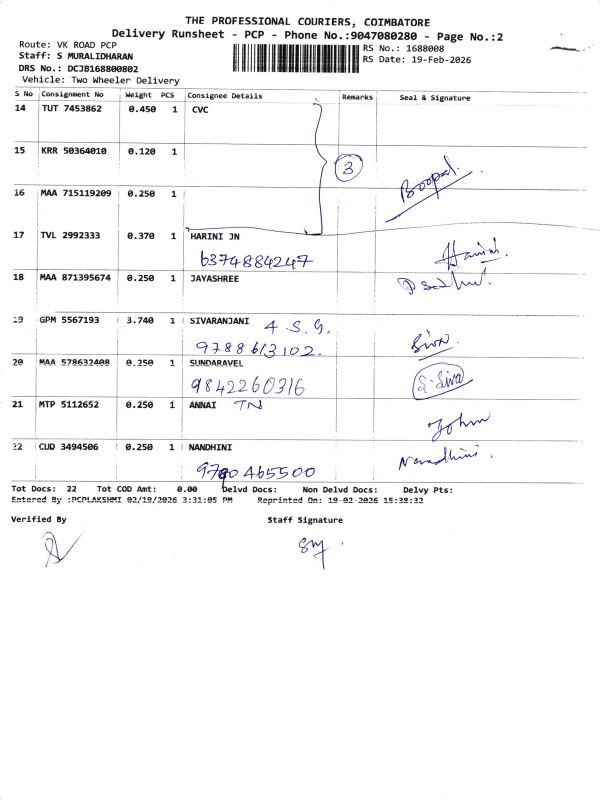 THE PROFESSIONAL COURIERS, COIMBATORE
Delivery Runsheet - PCP - Phone No.:9047080280 - Page No.:2
Route: VK ROAD PCP
RS No.: 1688008
Staff: S MURALIDHARAN
RS Date: 19-Feb-2026
DRS No.: DCJB168800802
Vehicle: Two Wheeler Delivery
S No Consignment No Weight PCS Consignee Details Remarks Seal & Signature
14 TUT 7453862 0.450 1 CVC
15 KRR 50364010 0.120 1
3
Boopal.
16 MAA 715119209 0.250 1
17 TVL 2992333 0.370 1 HARINI JN
6374884247
Harini.
18 MAA 871395674 0.250 1 JAYASHREE
19 GPM 5567193 3.740 1 SIVARANJANI
A.S.G.
9788613102.
Siva.
20 MAA 578632408 0.250 1 SUNDARAVEL
9842260316
S.Siva
21 MTP 5112652 0.250 1 ANNAI TN
John
22 CUD 3494506 0.250 1 NANDHINI
Nandhini.
465500
Tot Docs: 22 Tot COD Amt: 0.00 Delvd Docs: Non Delvd Docs: Delvy Pts:
Entered By :PCPLAKSHMI 02/19/2026 3:31:05 PM Reprinted On: 19-02-2026 15:38:32
Verified By Staff Signature